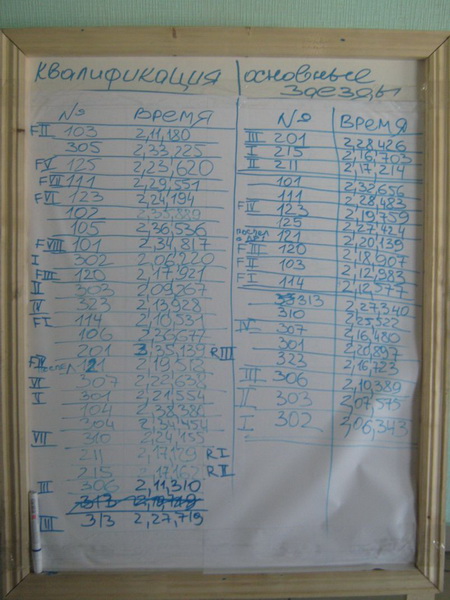 Квалификация
№ Время
FII 103 2,11,180
305 2,33,225
FV 125 2,23,620
FVII 111 2,29,551
FVI 123 2,24,194
102
105 2,36,536
FVIII 101 2,34,817
I 302 2,06,220
FIII 120 2,17,921
II 303 2,09,267
IV 323 2,13,928
FI 114 2,10,531
106
201 RIII
VI 307 2,22,638
V 301 2,21,554
104 2,38,380
304 2,34,454
VII 310 2,24,155
211 2,17,179 RI
215 RII
III 306 2,11,310
313
VIII 313 2,27,719
основные заезды
№ Время
III 201 2,28,426
I 215 2,16,703
II 211 2,17,214
101 2,32,656
111 2,28,483
FIV 123 2,19,759
125 2,27,424
121 2,20,139
FIII 120 2,18,007
FII 103 2,12,983
FI 114 2,12,577
313 2,27,340
310 2,25,322
IV 307 2,16,480
301 2,20,897
323 2,16,723
III 306 2,10,389
II 303 2,07,575
I 302 2,06,343